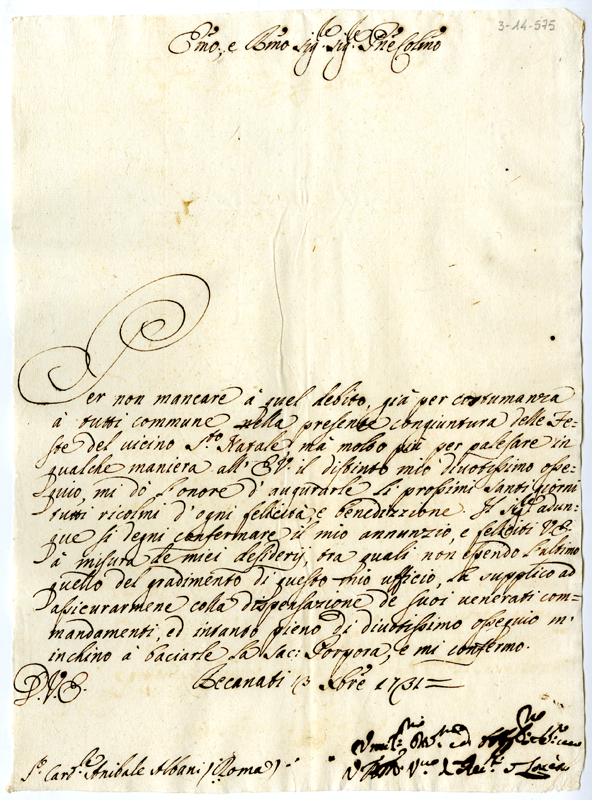 3-14-575
E'mo, e R'mo Sig.re Sig.re P'ne Col'mo
Per non mancare à quel debito, già per costumanza
à tutti commune nella presente congiuntura delle Fe=
ste del vicino S.to Natale, mà molto più per palesare in
qualche maniera all' E.V. il distinto mio divotissimo osse=
quio, mi dò l'onore d'augurarle li prossimi santi giorni
tutti ricolmi d'ogni felicità e benedizzione. Il Sig.re adun=
que si degni confermare il mio annunzio, e feliciti V.E.
à misura de miei desiderj, tra quali non essendo l'ultimo
quello del gradimento di questo mio ufficio, la supplico ad
assicurarmene colla dispensazione de suoi venerati com=
mandamenti, ed intanto pieno di divotissimo ossequio m'
inchino à baciarle la Sac: Porpora, e mi confermo.
D.V.E. Recanati 13 Xbre 1731=
Umil.mo
S.r Card.le Anibale Albani (Roma)